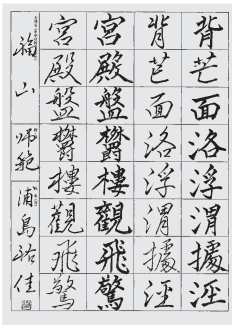 背芒面洛浮渭據涇
背芒面洛浮渭據涇
宮殿盤鬱樓觀飛驚
宮殿盤鬱樓觀飛驚
福山
師範
浦島